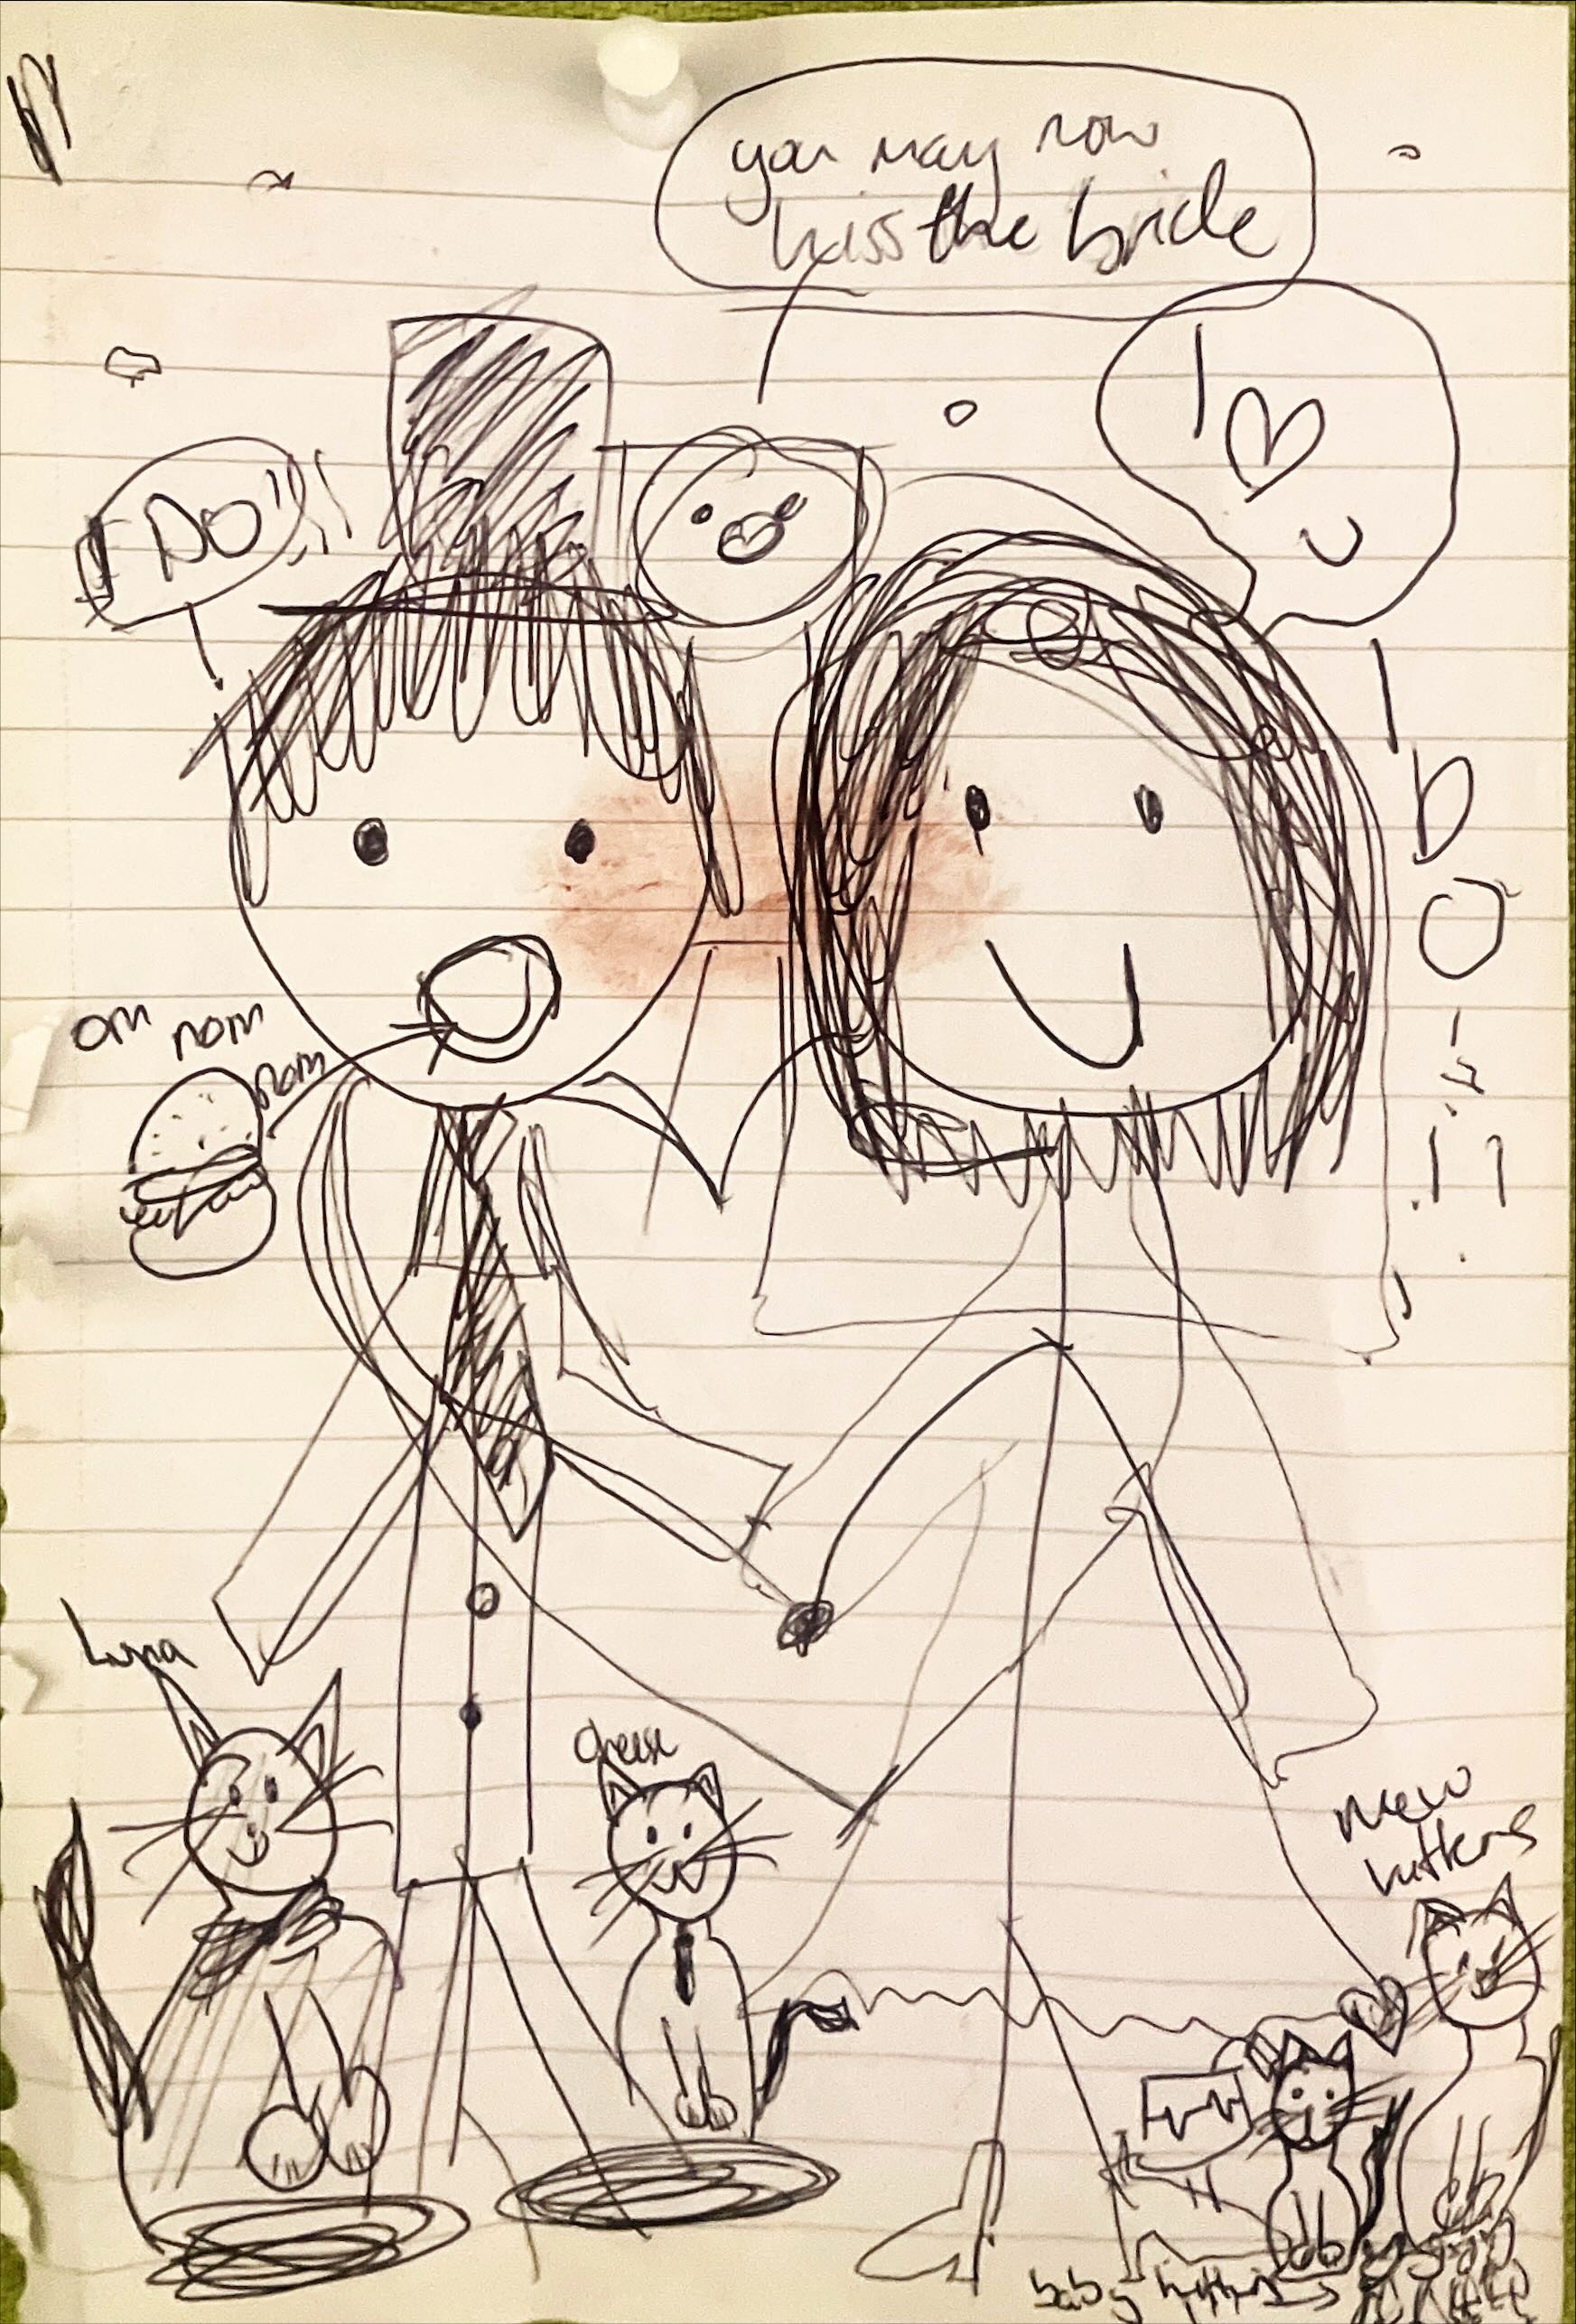 you may now
kiss the bride
I ♡
U
I DO!!!
I
D
O
!
!
!
!
om nom
nom
Luna
cheese
new
kittens
baby kittens →